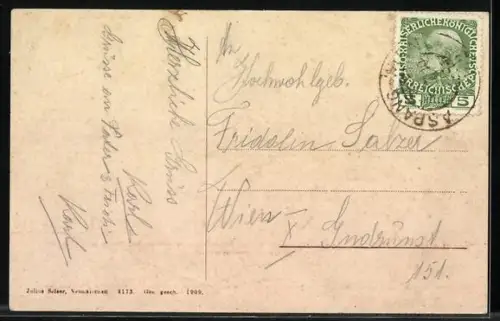 Herzliche Gruss
Karl
Grüsse an Vater &
Karl
An
Hochwohlgeb.
Fridolin Salzer
Wien X
Gudrunst.
151.
KAISERLICHE KÖNIGLICHE
ÖSTERREICHISCHE POST
5
ASPANG
Julius Seiser, Neunkirchen 4173. Ges. gesch. 1909.